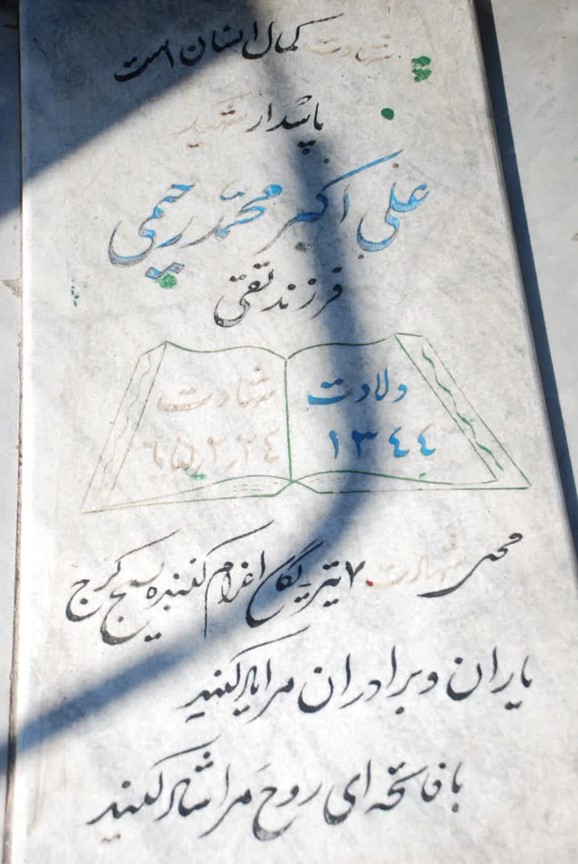 شهادت کمال انسان است
پاسدار شهید
علی اکبر محمد رحیمی
فرزند تقی
ولادت
۱۳۴۴
شهادت
۶۵٫۲٫۲۴
محل شهادت ۷ تیر یگان اعزام کننده بسیج کرج
یاران و برادران مرا یاد کنید
با فاتحه ای روح مرا شاد کنید